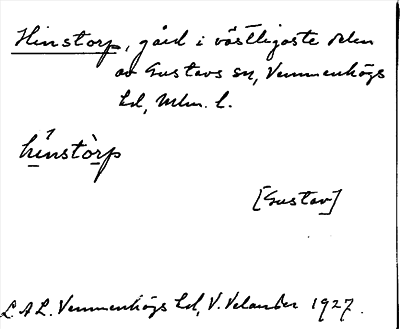 Hinstorp, gård i västligaste delen
av Gustavs sn, Vemmenhögs
hd, Mlm. l.
hi̱nstò̱rp
[Gustav]
L.A.L. Vemmenhögs hd, V. Velander 1927.